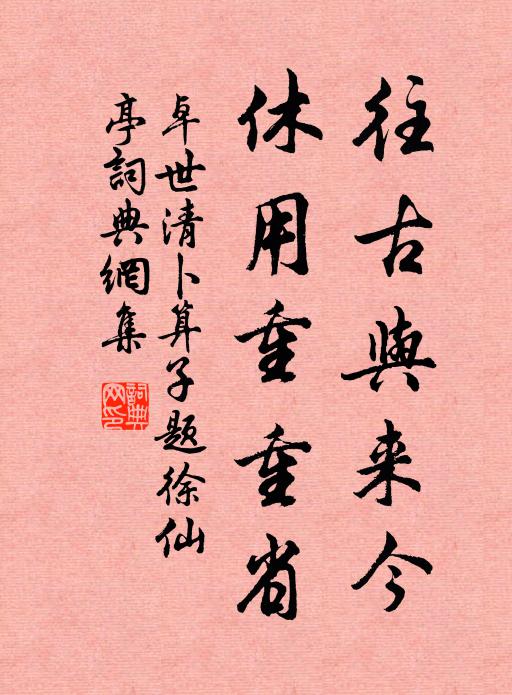 往古與来今
休用重重省
卓世清卜算子題徐仙
亭詞典網集
詞典網印